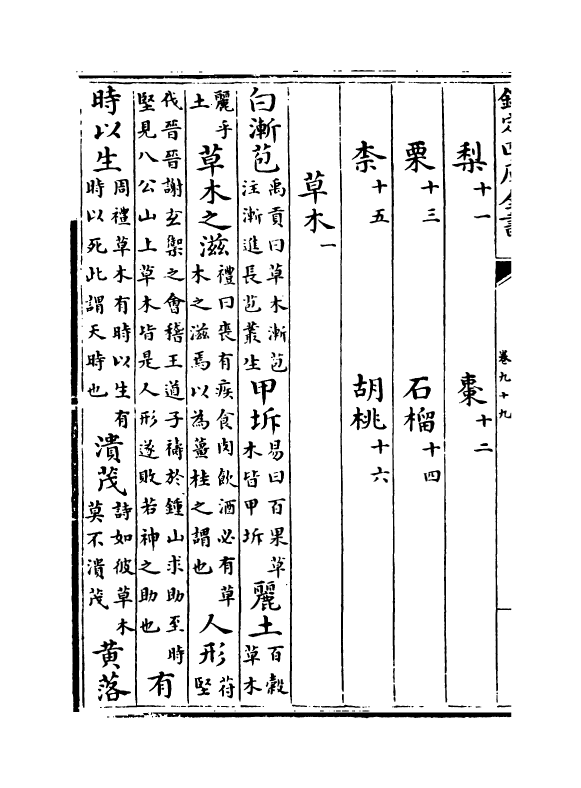 欽定四庫全書 卷九十九
梨十一 棗十二
栗十三 石榴十四
柰十五 胡桃十六
草木一
白漸苞 禹貢曰草木漸苞注漸進長苞叢生 甲坼 易曰百果草木皆甲坼 麗土 百穀草木
麗乎土 草木之滋 禮曰喪有疾食肉飲酒必有草木之滋焉以為薑桂之謂也 人形 苻堅
伐晉晉謝玄禦之會稽王道子禱於鍾山求助至時堅見八公山上草木皆是人形遂敗若神之助也 有
時以生 周禮草木有時以生有時以死此謂天時也 潰茂 詩如彼草木莫不潰茂 黄落